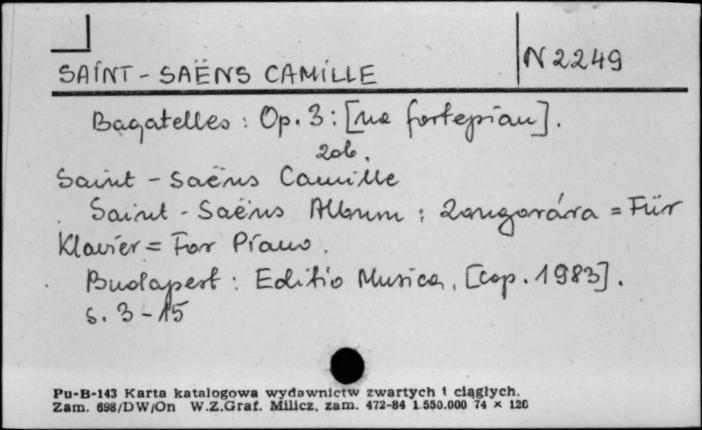 SAINT-SAËNS CAMILLE
N 2249
Bagatelles : Op. 3 : [na fortepian].
zob.
Saint-Saëns Camille
Saint-Saëns Album : Zongorára = Für
Klavier = For Piano.
Budapest : Editio Musica, [cop. 1983].
s. 3-15
Pu-B-143 Karta katalogowa wydawnictw zwartych i ciągłych.
Zam. 698/DW/On W.Z.Graf. Milicz, zam. 472-84 1.550.000 74 × 120